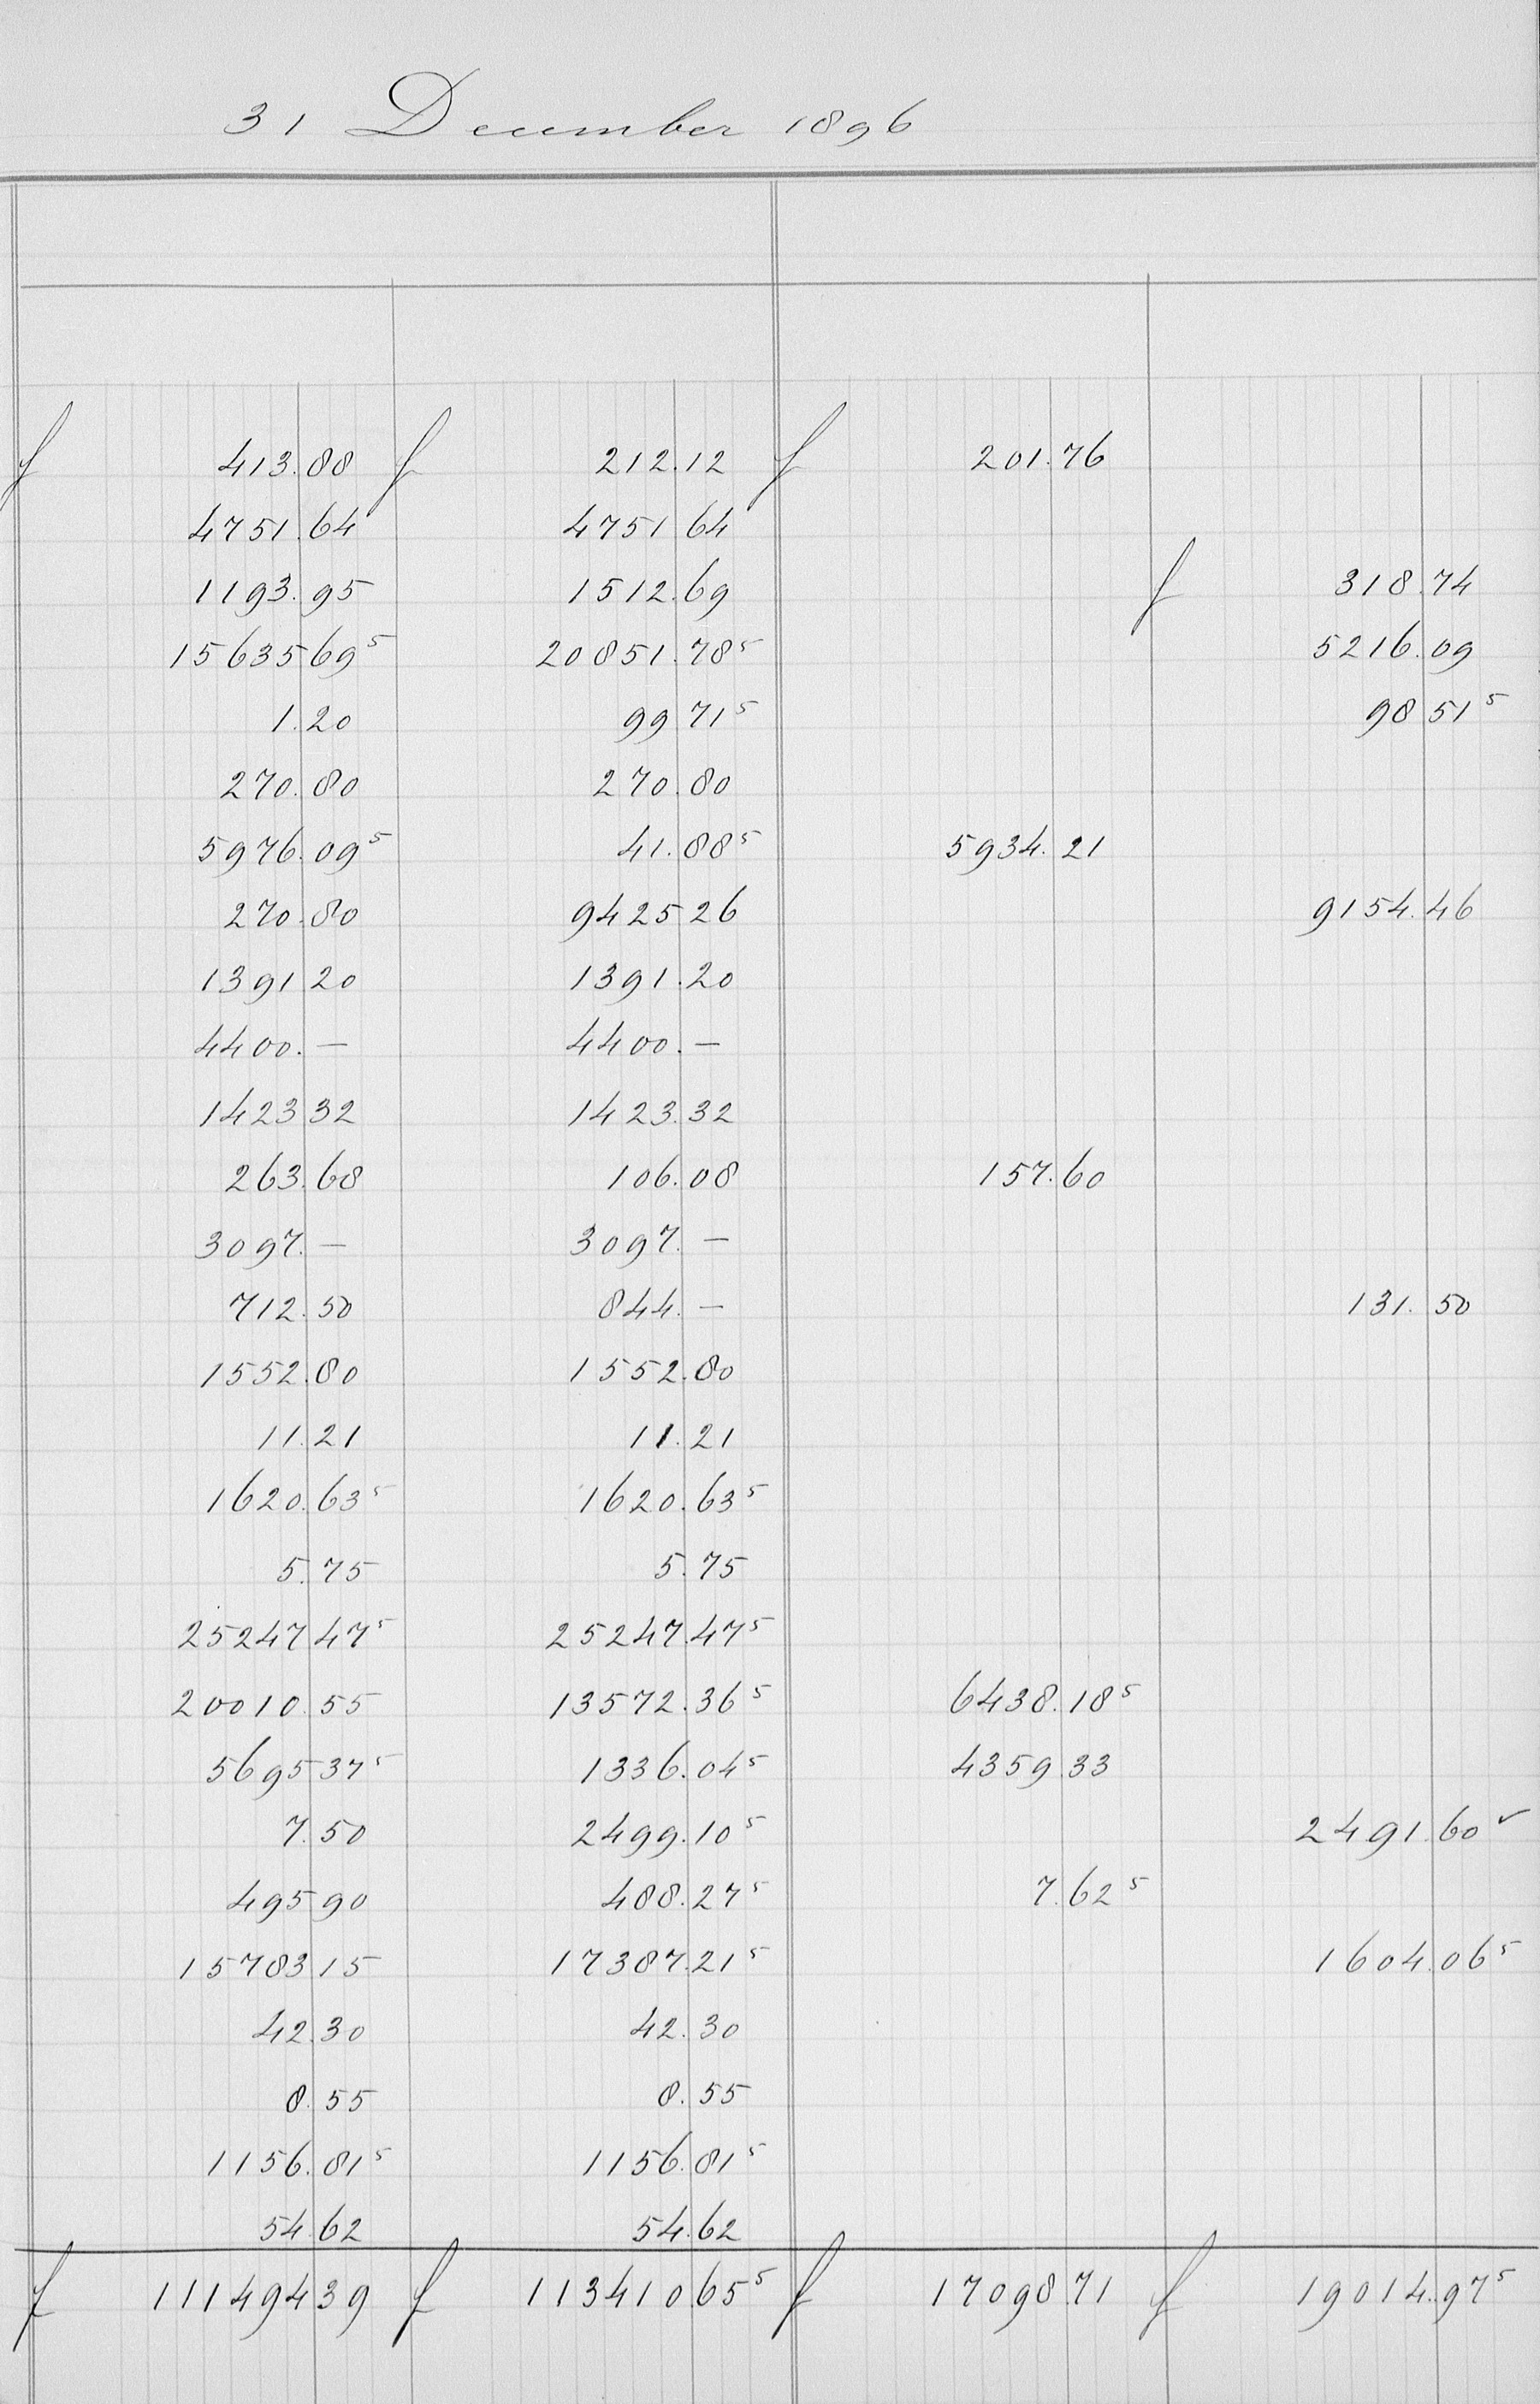 31 December 1896
f 413.88 f 212.12 f 201.76
4751.64 4751 64
1193.95 1512.69 f 318.74
15635 69⁵ 20851.78⁵ 5216.09
1.20 99 71⁵ 98 51⁵
270.80 270.80
5976.09⁵ 41.88⁵ 5934.21
270.80 9425 26 9154.46
1391 20 1391.20
4400.— 4400.—
1423 32 1423.32
263.68 106.08 157.60
3097.— 3097.—
712.50 844.— 131.50
1552.80 1552.80
11.21 11.21
1620.63⁵ 1620.63⁵
5.75 5.75
25247 47⁵ 25247.47⁵
20010 55 13572.36⁵ 6438.18⁵
5695 37⁵ 1336.04⁵ 4359.33
7.50 2499.10⁵ 2491.60⁵
495 90 488.27⁵ 7.62⁵
15783 15 17387.21⁵ 1604.06⁵
42.30 42.30
8.55 8.55
1156.81⁵ 1156.81⁵
54.62 54.62
f 111494 39 f 113410.65⁵ f 17098.71 f 19014.97⁵